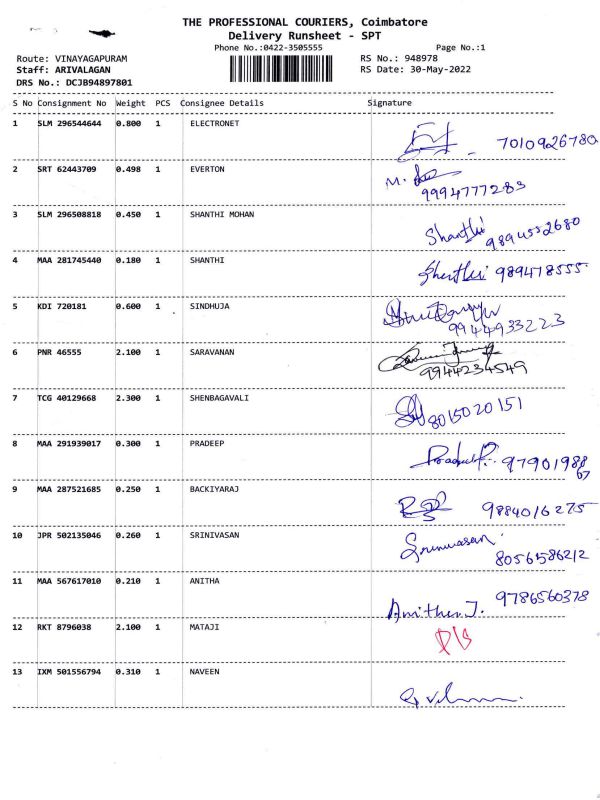 THE PROFESSIONAL COURIERS, Coimbatore
Delivery Runsheet - SPT
Phone No.:0422-3505555 Page No.:1
Route: VINAYAGAPURAM RS No.: 948978
Staff: ARIVALAGAN RS Date: 30-May-2022
DRS No.: DCJB94897801
S No Consignment No Weight PCS Consignee Details Signature
1 SLM 296544644 0.800 1 ELECTRONET 7010926780
2 SRT 62443709 0.498 1 EVERTON M.
9994777283
3 SLM 296508818 0.450 1 SHANTHI MOHAN Shanthi
9894552680
4 MAA 281745440 0.180 1 SHANTHI Shanthi 989478555
5 KDI 720181 0.600 1 SINDHUJA
9944933223
6 PNR 46555 2.100 1 SARAVANAN
9944234549
7 TCG 40129668 2.300 1 SHENBAGAVALI 8015020151
8 MAA 291939017 0.300 1 PRADEEP Pradeep.
9 MAA 287521685 0.250 1 BACKIYARAJ 9884016275
10 JPR 502135046 0.260 1 SRINIVASAN Srinivasan
8056158621 2
11 MAA 567617010 0.210 1 ANITHA 9786560378
Anitha J.
12 RKT 8796038 2.100 1 MATAJI
13 IXM 501556794 0.310 1 NAVEEN